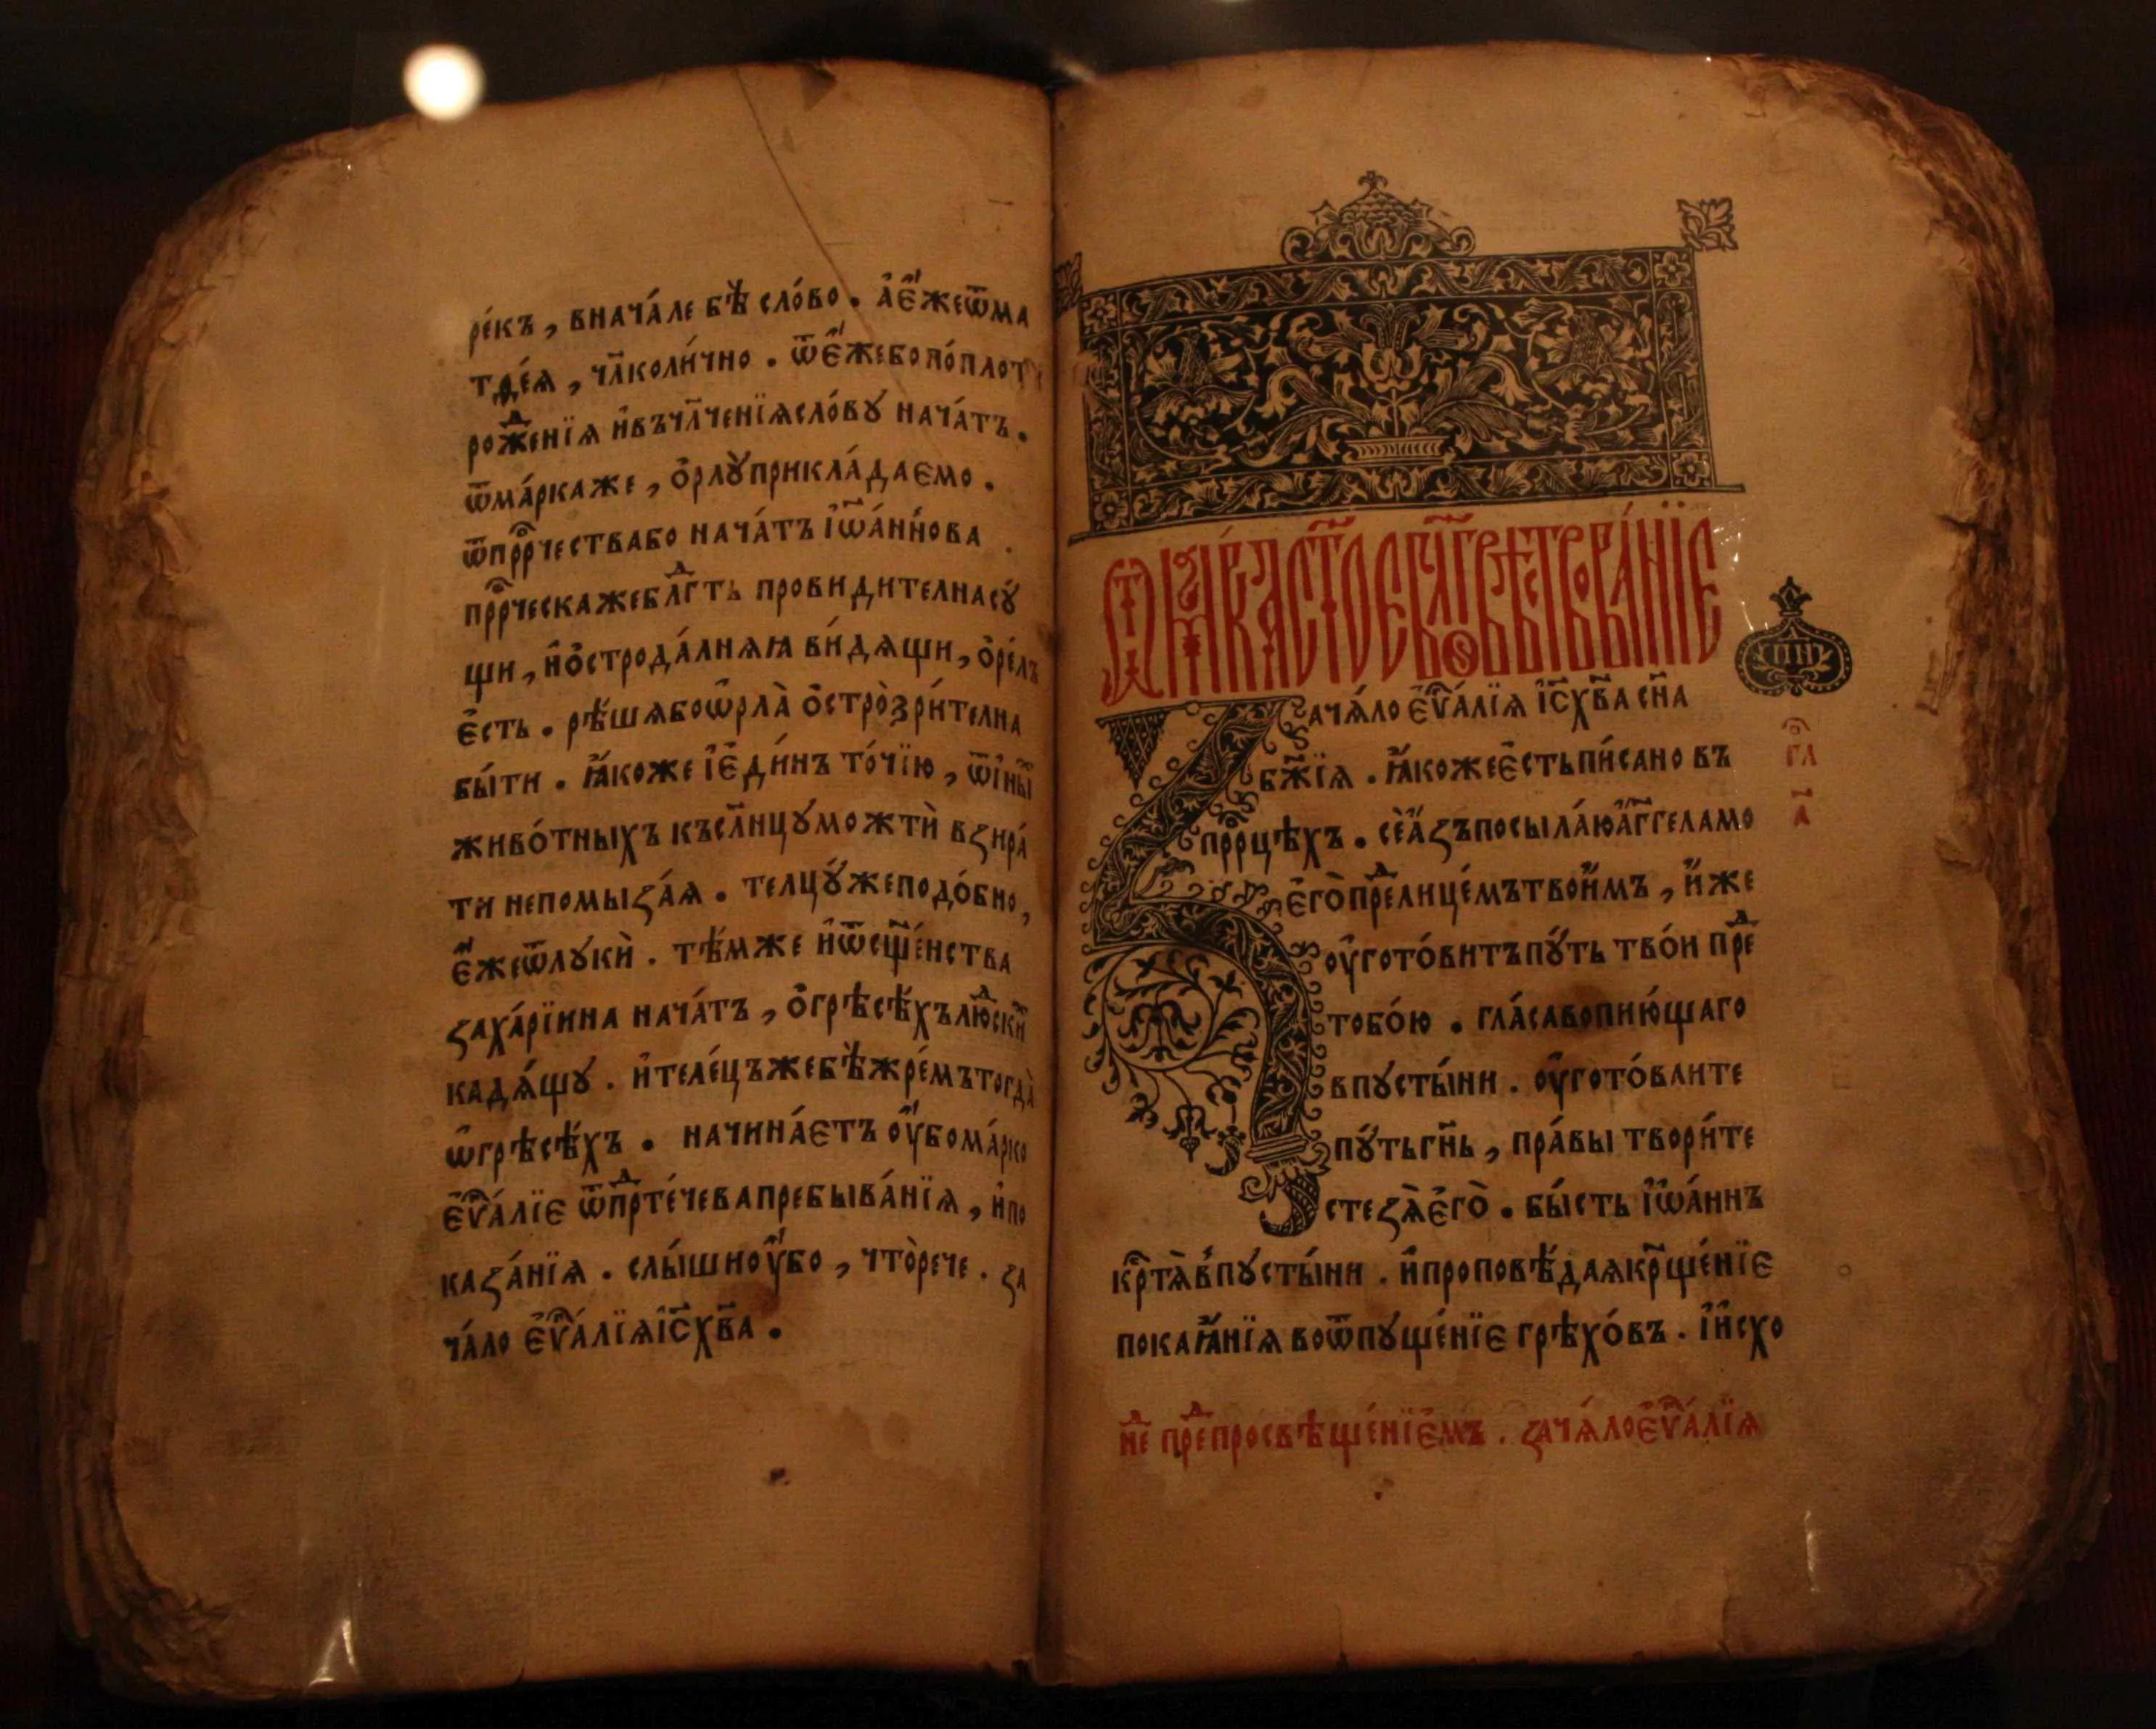 ре́къ, внача́ле бѣ̀ сло́во. а҆є҆́жеѿма
тѳе́ѧ, чл҃коли́чно. ѿє҆́жебопо́плот
рожⷣенїѧ и҆въчл҃ченїѧсло́вꙋ нача́тъ.
ѿма́ркаже, ѻ҆рлꙋ̀прикла́даемо.
ѿпрⷪ҇рчествабо нача́тъ і҆ѡа́ннова
прⷪ҇рческажеблгⷣть провидителнасꙋ́
щи, и҆ѻ҆строда́лнѧꙗ ви́дѧщи, ѻ҆ре́лъ
є҆́сть. рѣ́шѧбоѡ҆рла̀ ѻ҆стро̀зри́телна
бы́ти. ꙗ҆́коже і҆є҆ди́нъ то́чїю, ѿи҆ны́
живо́тныхъ късл҃нцꙋможтѝ взира́
ти непомыза́ѧ. телцꙋ́жеподо́бно,
є҆́жеѿлꙋкѝ. тѣ́мже и҆ѿсщ҃е́нства
заха́рїина нача́тъ, ѻ҆грѣсѣ́хълюⷣски
кадѧ́щꙋ. и҆теле́цъжебѣ̀жре́мътогда̀
ѡ҆грѣсѣ́хъ. начина́етъ ᲂу҆́бома́рко
є҆ѵⷢ҇а́лїе ѿпрⷣте́чевапребыва́нїѧ, и҆по
каза́нїѧ. слы́шиᲂу҆́бо, что̀рече. за
ча́ло є҆ѵⷢ҇а́лїѧі҆с҃хв҃а.
Ѿма́ркаст҃о́еб҃лгⷪ҇вѣствова́нїе
Зача́ло є҆ѵⷢ҇а́лїѧ і҆с҃хв҃а сн҃а
бж҃їѧ. ꙗ҆́кожеє҆́стьпи́сано въ
прⷪ҇рцѣхъ. сѐа҆́зъпосыла́юа҆́гг҃еламо
є҆го̀преⷣлице́мътвои́мъ, и҆́же
ᲂу҆гото́витъпꙋ́ть тво́и преⷣ
тобо́ю. гла́савопию́щаго
впꙋсты́ни. ᲂу҆гото́ваите
пꙋ́тьгн҃ь, пра́вы твори́те
стезѧ̀є҆го̀. бы́сть і҆ѡа́ннъ
крⷭ҇тѧ̀впꙋсты́ни. и҆проповѣ́даѧкрⷭ҇ще́нїе
покаѧ́нїѧ воѿпꙋще́нїе грѣхо́въ. і҆и҆схо
пн
гл
а҃
неⷣ преⷣпросвѣще́нїемъ. зача́лоє҆ѵⷢ҇а́лїѧ